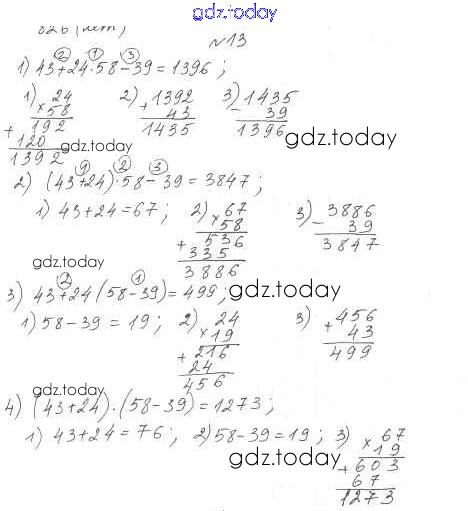 gdz.today
№13
1) 43+24·58-39=1396;
② ① ③
1) 24 × 58 192 + 120 1392
2) 1392 + 43 1435
3) 1435 - 39 1396
gdz.today
gdz.today
2) (43+24)·58-39=3847;
① ② ③
1) 43+24=67;
2) 67 × 58 536 + 335 3886
3) 3886 - 39 3847
gdz.today
3) 43+24(58-39)=499;
② ①
gdz.today
1) 58-39=19;
2) 24 × 19 216 + 24 456
3) 456 + 43 499
gdz.today
gdz.today
4) (43+24)·(58-39)=1273;
1) 43+24=76; 2) 58-39=19;
3) 67 × 19 603 + 67 1273
gdz.today